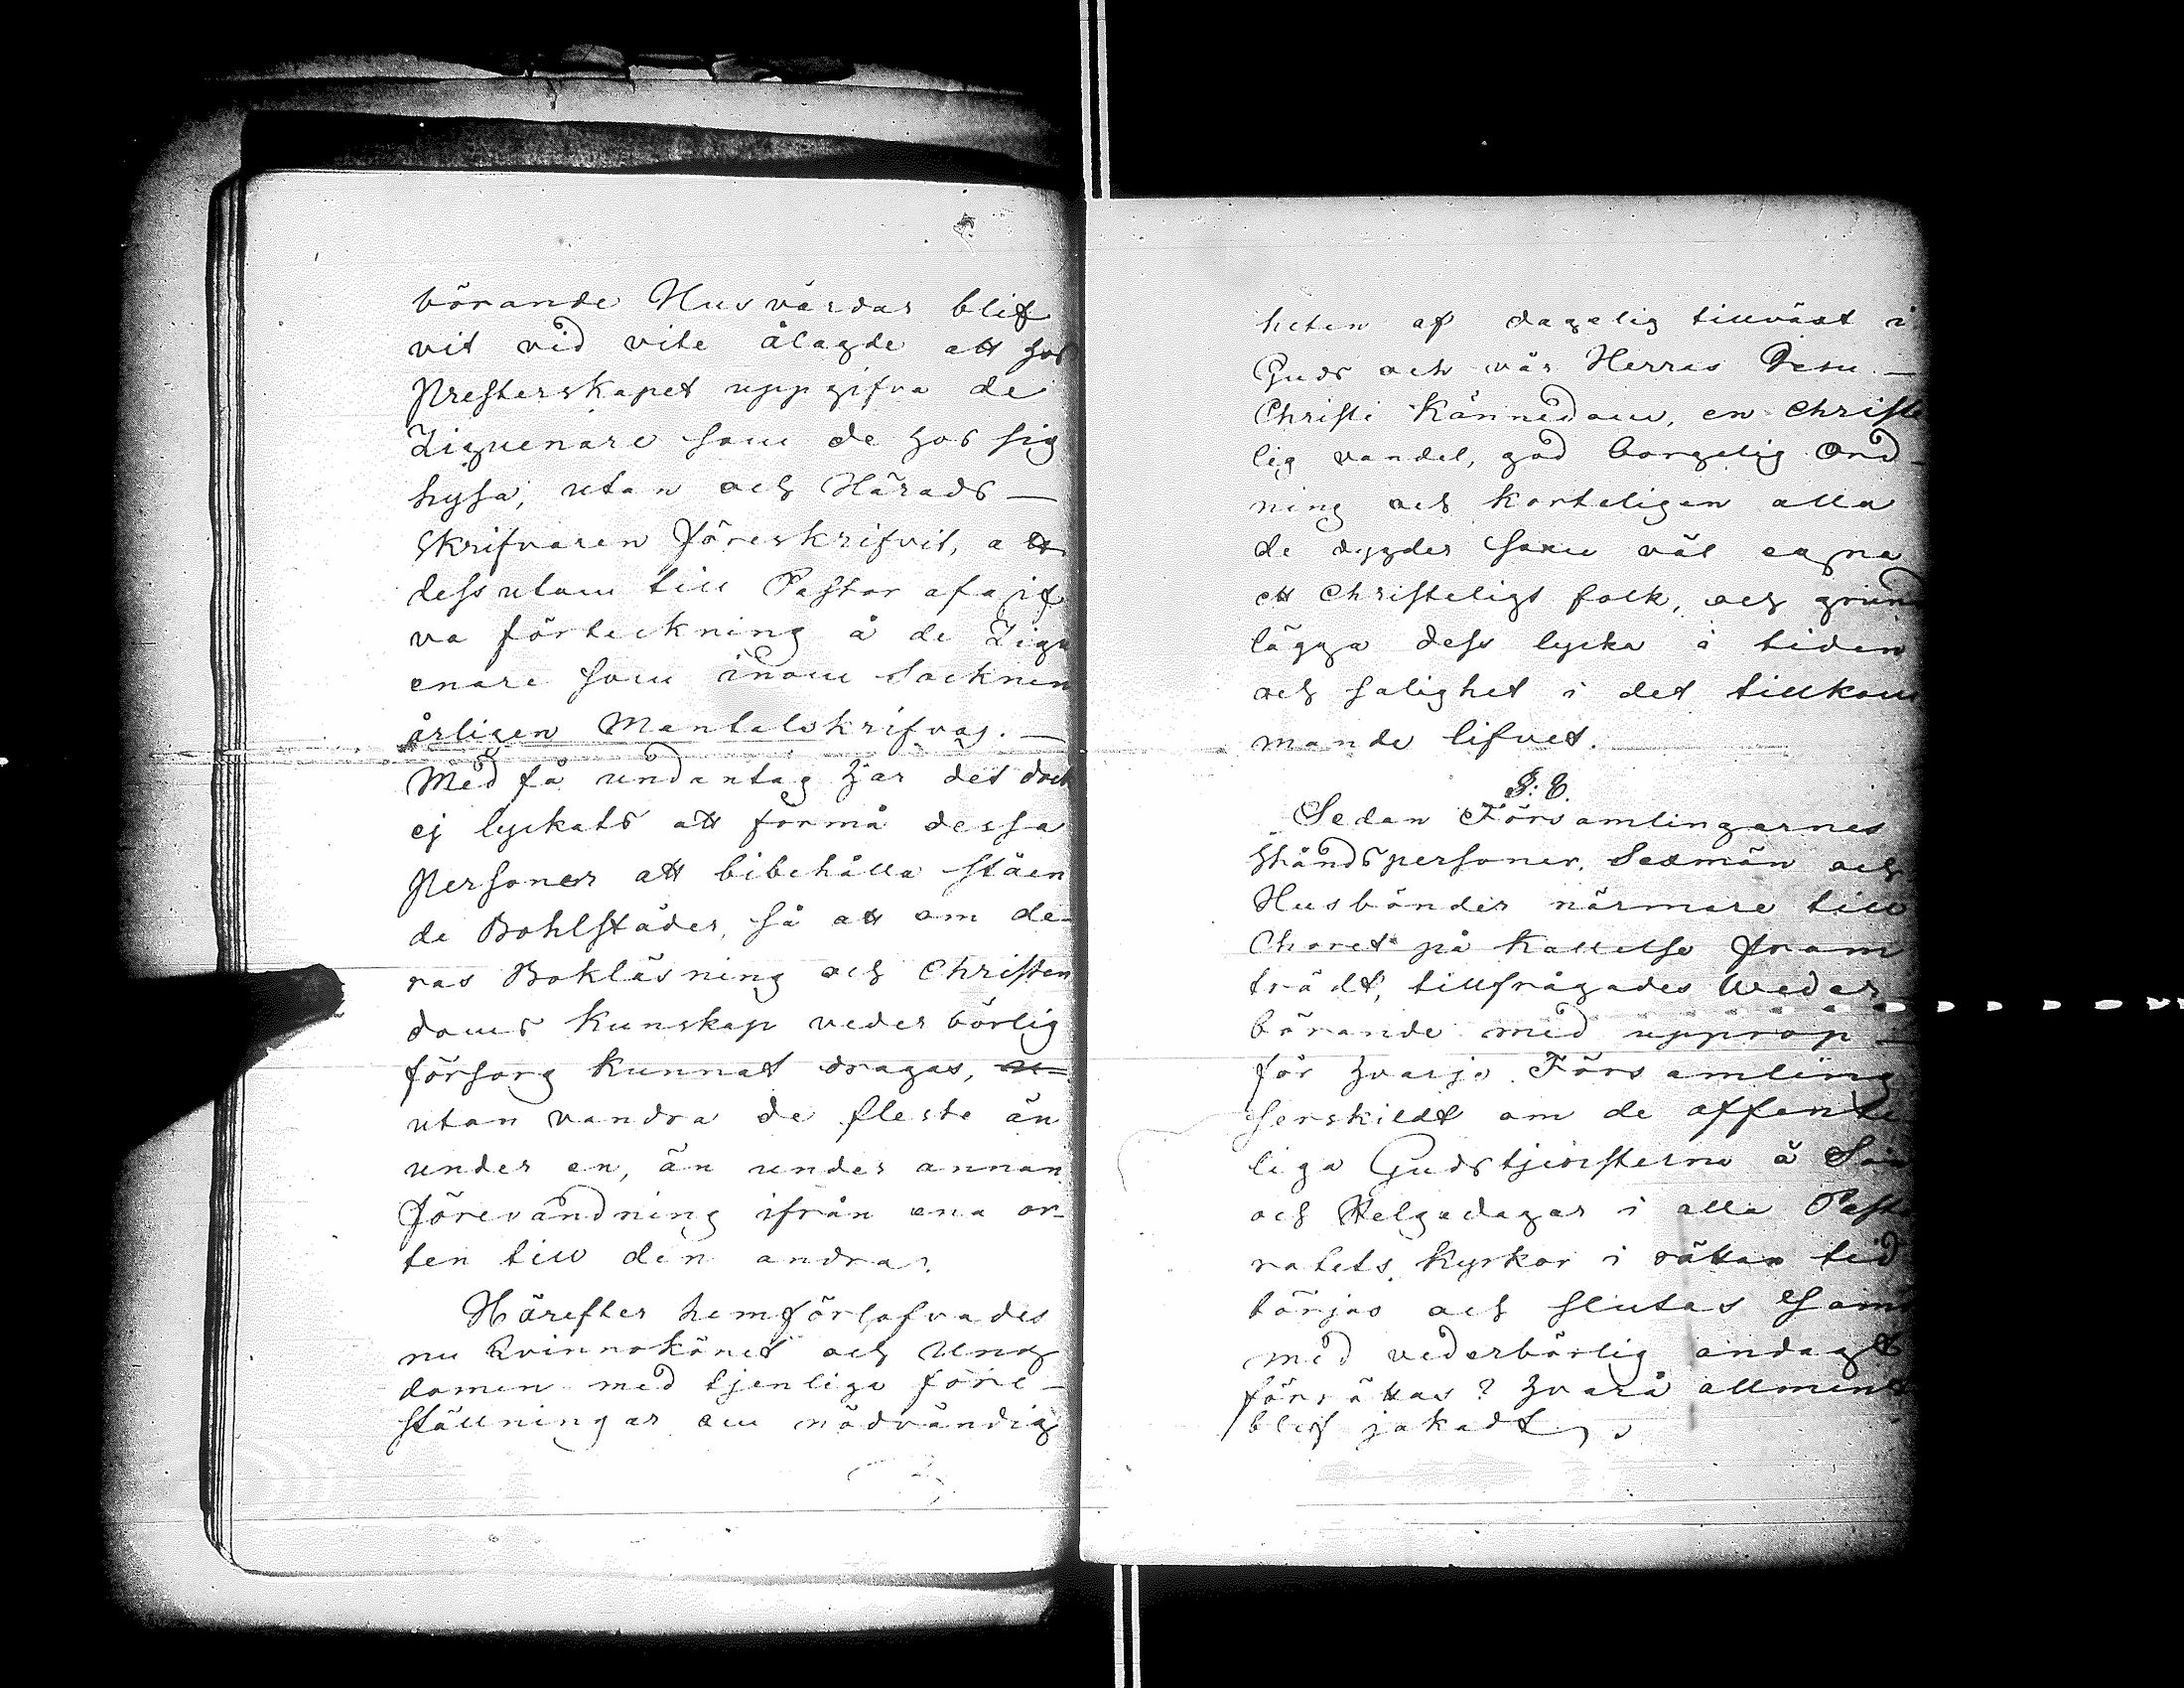 börande Husvärdar blif
vit vid vite ålagde att hos
Presterskapet uppgifva de
Ziguenare som de hos sig
hysa, utan och Härads—
skrifvaren föreskrifvit, att
dessutom till Pastor afgif
va förteckning å de Zigu
enare som inom Socknen
årligen Mantalskrifvas. —
Med få undantag har det dock
ej lyckats att förmå dessa
personer att bibehålla ståen
de Bohlstäder, så att om de-
ras Bokläsning och Christen
doms Kunskap vederbörlig
försorg kunnat dragas,
utan vandra de fleste än
under en, än under annan
förevändning ifrån ena or-
ten till den andra.
Härefter hemförlofvades
nu Qvinnokönet och Ung
domen med tjenliga före-
ställningar om nödvändig
heten af dagelig tillväxt i
Guds och vår Herras Jesu —
Christi Kännedom, en Christe
lig vandel, god borgelig Ord-
ning och korteligen alla
de dygder som väl egna
ett Christeligt folk, och grund
lägga dess lycka i tiden
och salighet i det tillkom
mande lifvet.
§: 8.
Sedan Församlingarnes
Ståndspersoner, Sexmän och
Husbönder närmare till
Choret på Kallelse fram
trädt, tillfrågades Weder
börande med upprop —
för hvarje Församling
serskildt om de offente
liga Gudstjensterna å Sön
och Helgedagar i alla Pasto
ratets Kyrkor i rättan tid
börjas och slutas samt
med vederbörlig andagt
förrättas? hvarå allment
blef jakadt,